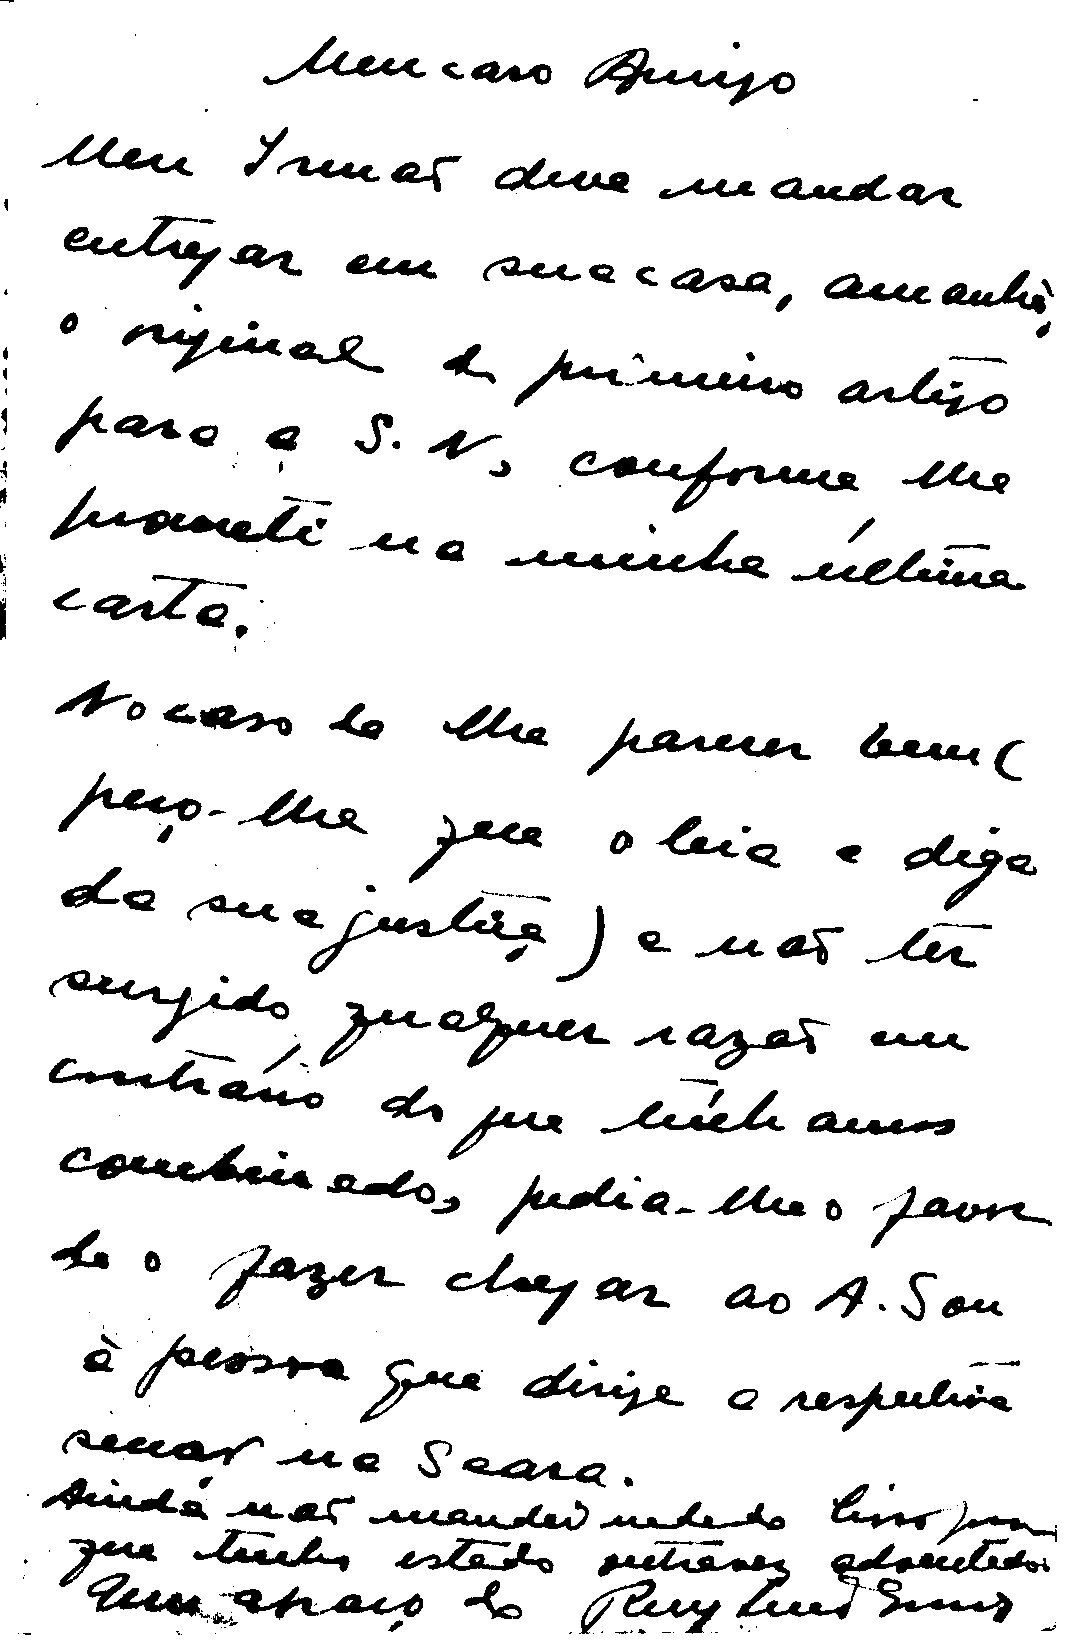 Meu caro Amigo
Meu Irmão deve mandar
entregar em sua casa, amanhã,
o original do primeiro artigo
para a S. N., conforme lhe
prometi na minha última
carta.
No caso de lhe parecer bem (
peço-lhe que o leia e diga
da sua justiça) e não ter
surgido qualquer razão em
contrário do que tínhamos
combinado, pedia-lhe o favor
de o fazer chegar ao A. S ou
à pessoa que dirige a respectiva
secção na Seara.
Ainda não mandei nada do Lisso por
que tenho estado outra vez adoentado.
Um abraço do Ruy Luís Gomes